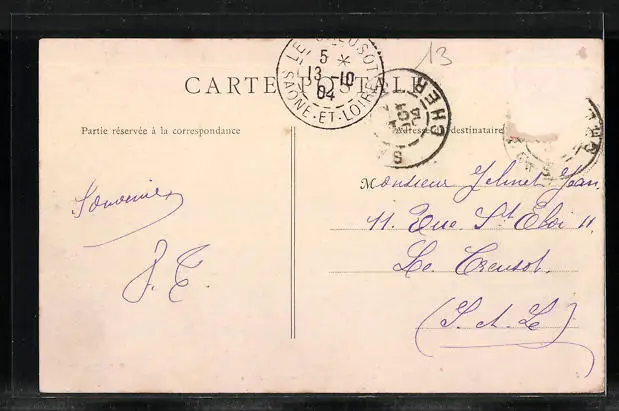 13
LE CREUSOT
5 *
13 -10
04
SAONE-ET-LOIRE
CARTE POSTALE
CHER
Partie réservée à la correspondance
Adresse du destinataire
Souvenir
J. T.
Monsieur Jolinet Jean
11. Rue. St Eloi 11.
Le Creusot.
(S. et. Le)